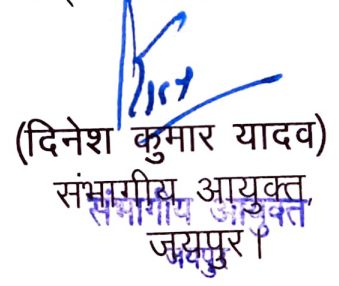 (दिनेश कुमार यादव)
संभागीय आयुक्त,
संभागीय आयुक्त
जयपुर।
जयपुर